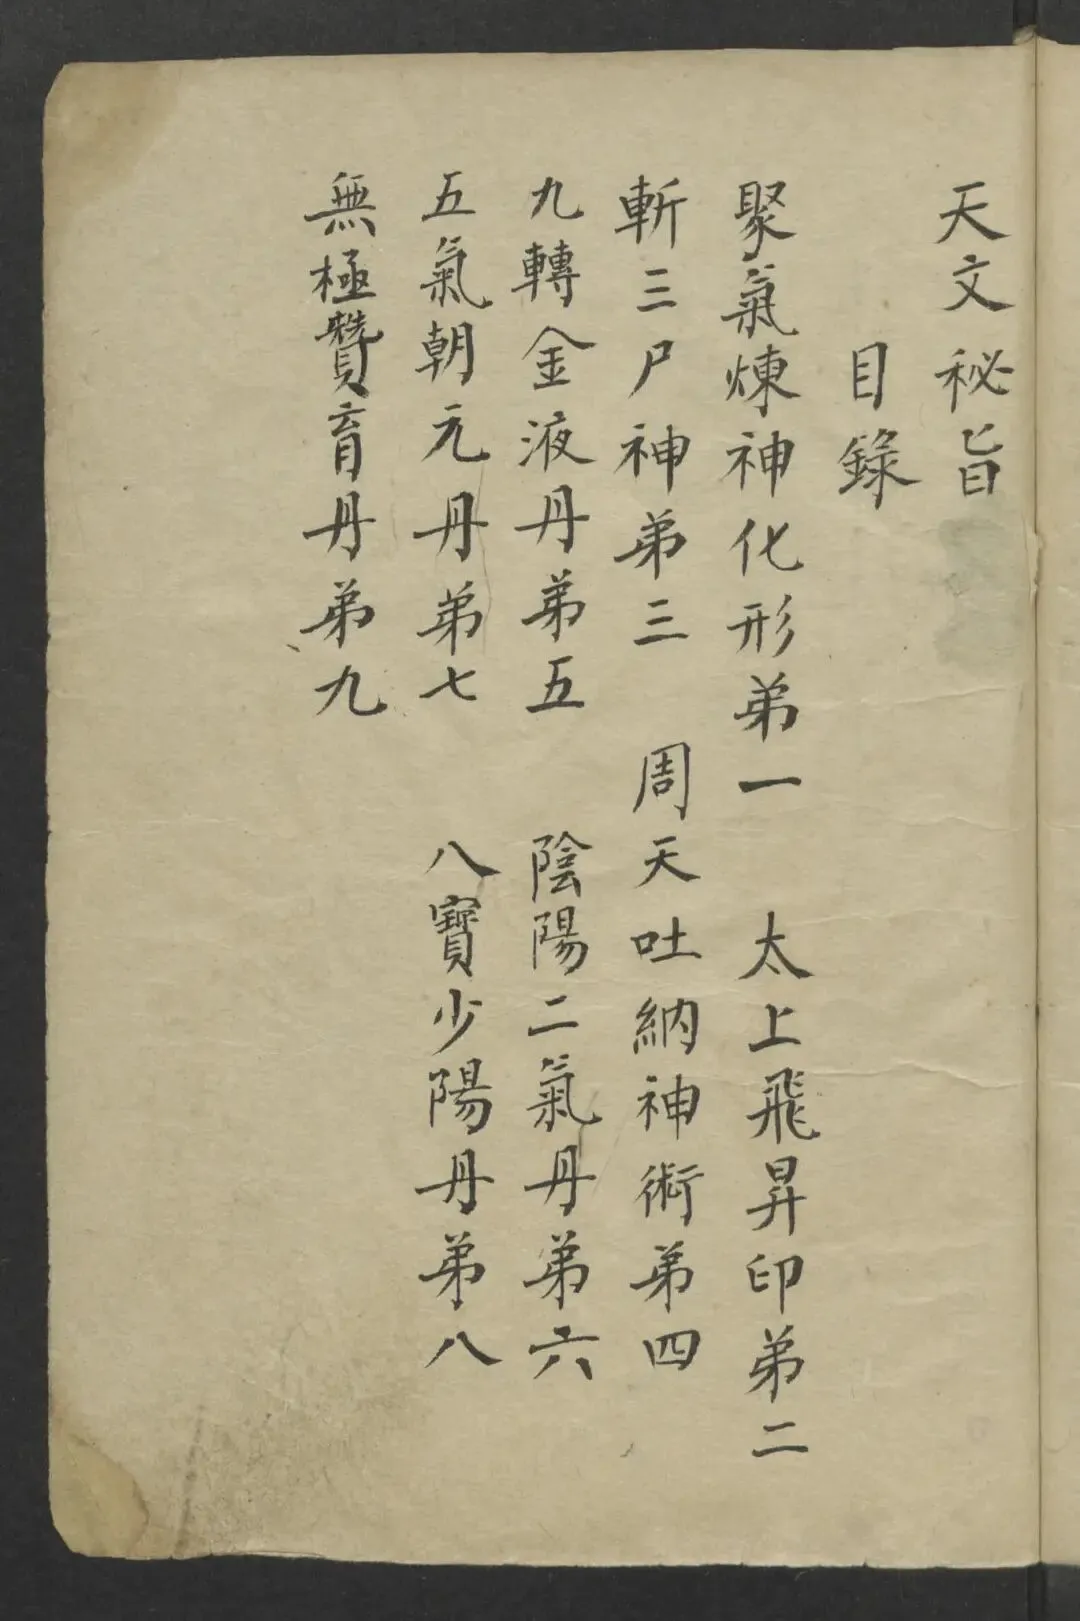 天文秘旨
目錄
聚氣煉神化形弟一　太上飛昇印弟二
斬三尸神弟三　周天吐納神術弟四
九轉金液丹弟五　陰陽二氣丹弟六
五氣朝元丹弟七　八寶少陽丹弟八
無極贊育丹弟九